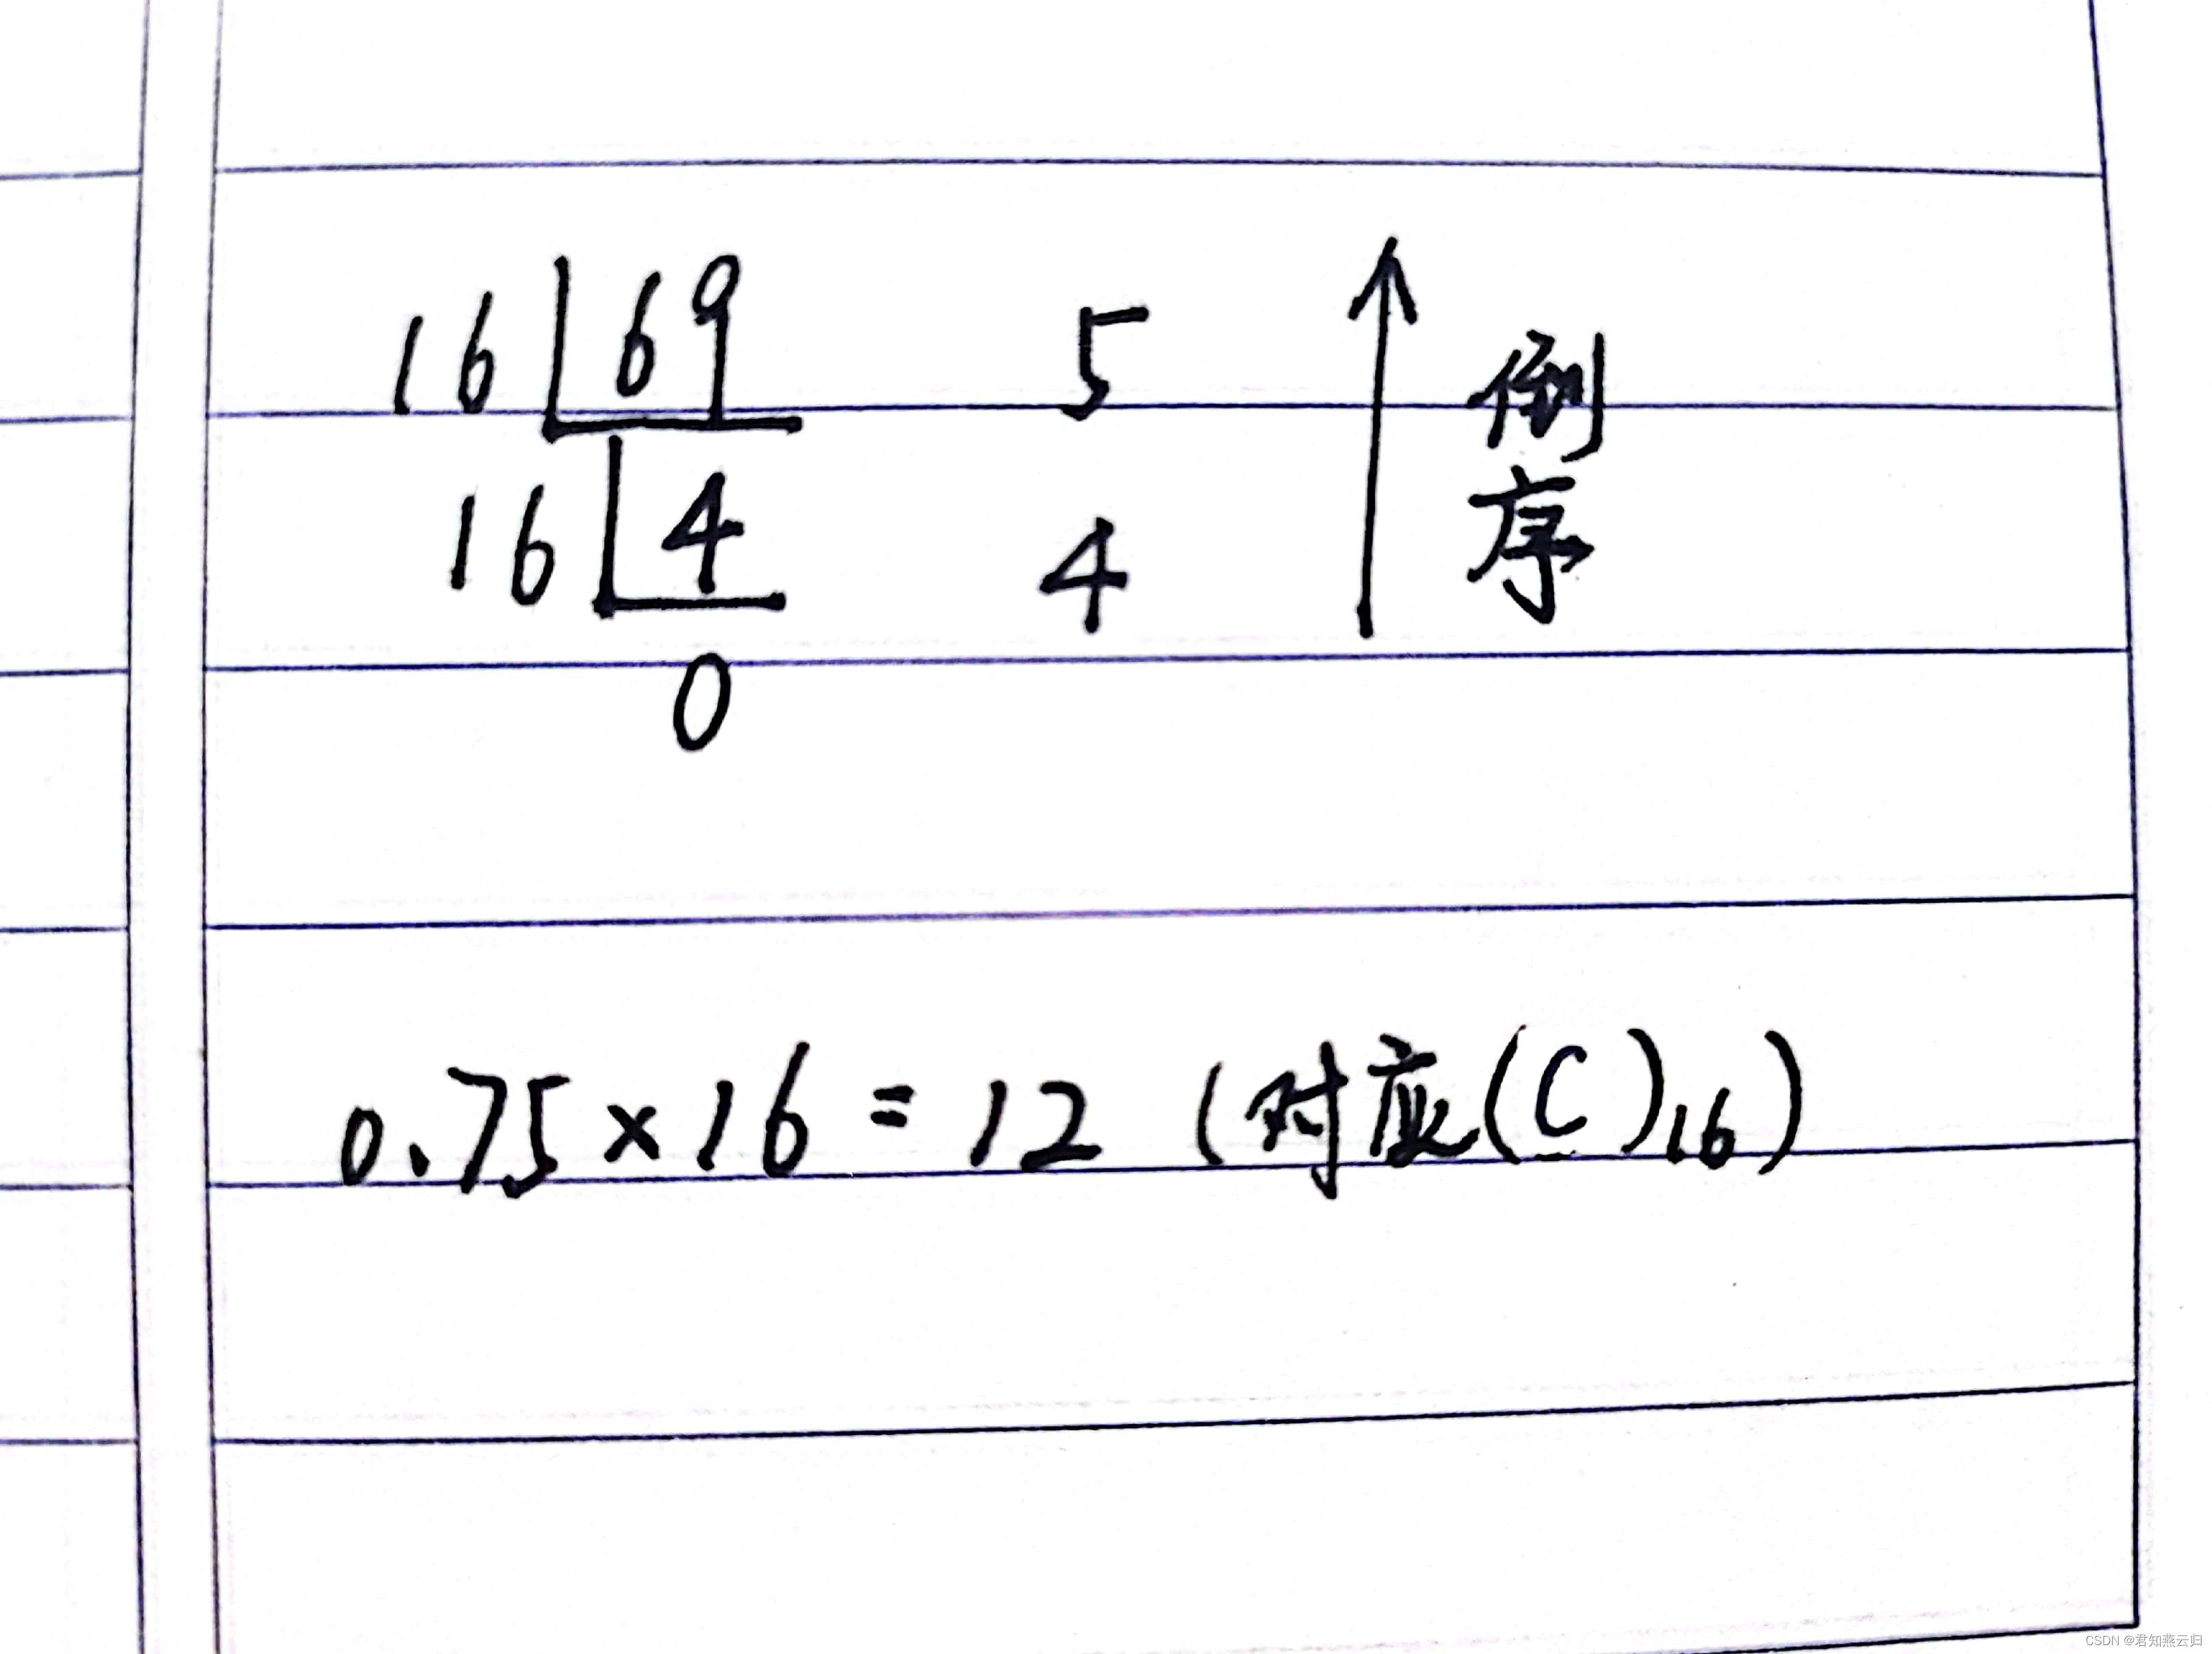 16 69 5
16 4 4
0
倒
序
0.75×16=12 (对应(C)16)
CSDN @君知燕云归